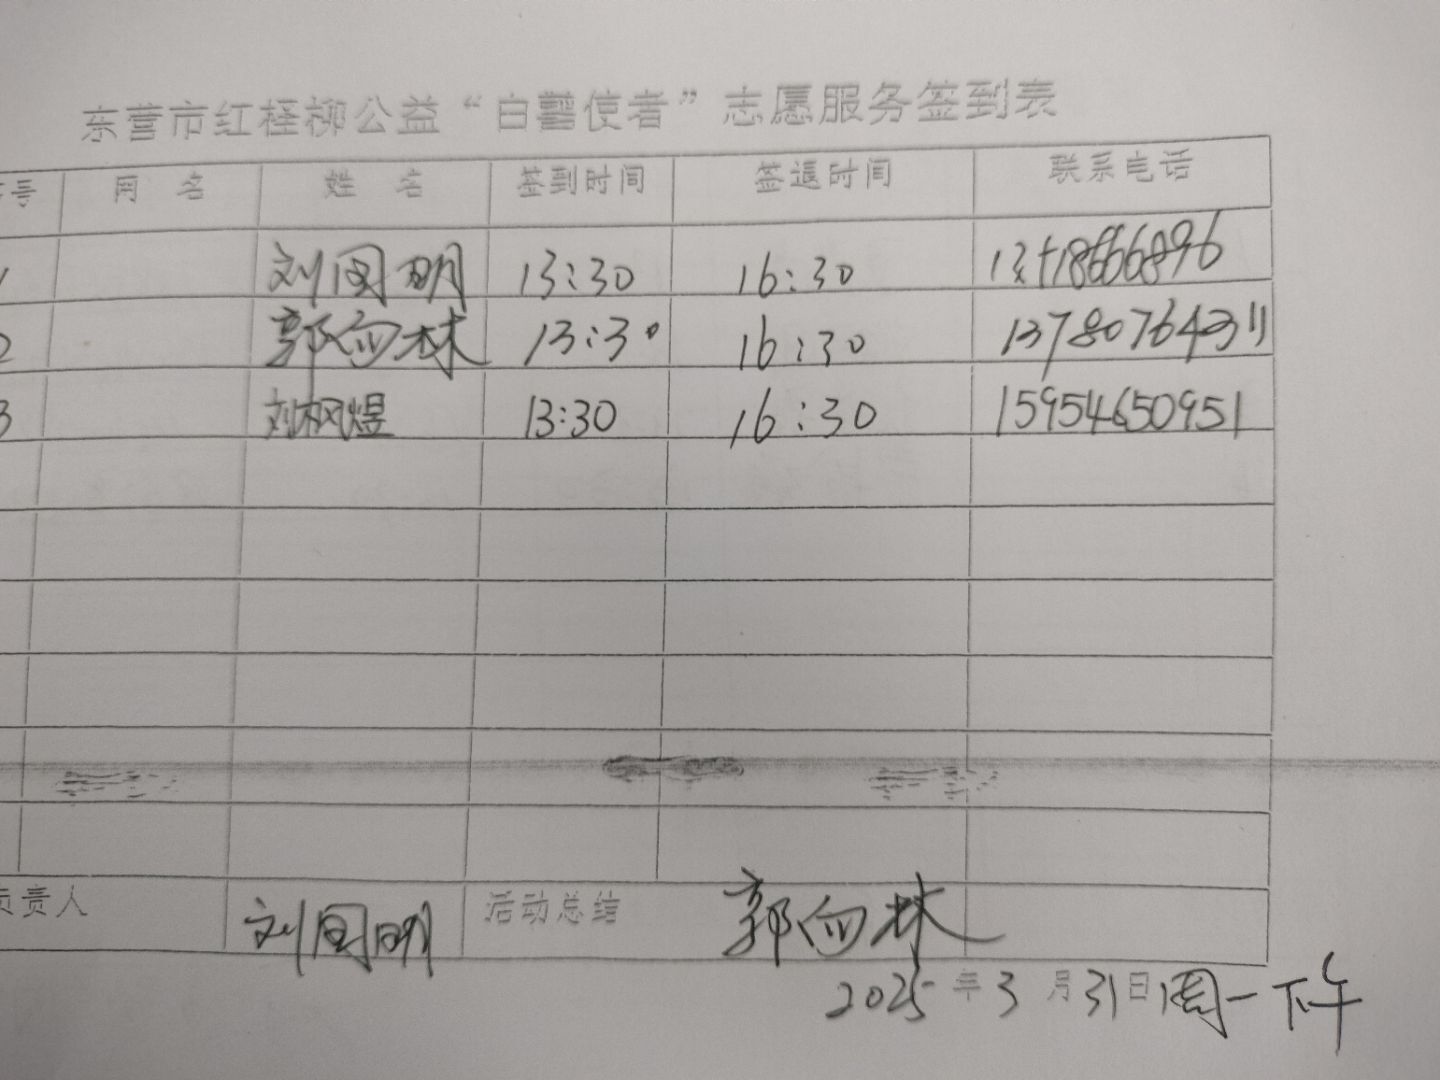 东营市红柽柳公益“白鹭使者”志愿服务签到表
序号 网 名 姓 名 签到时间 签退时间 联系电话
1 刘国明 13:30 16:30
2 郭向林 13:30 16:30 13780764311
3 刘枫煜 13:30 16:30 15954650951
负责人 刘国明 活动总结 郭向林
2025年3月31日周一下午